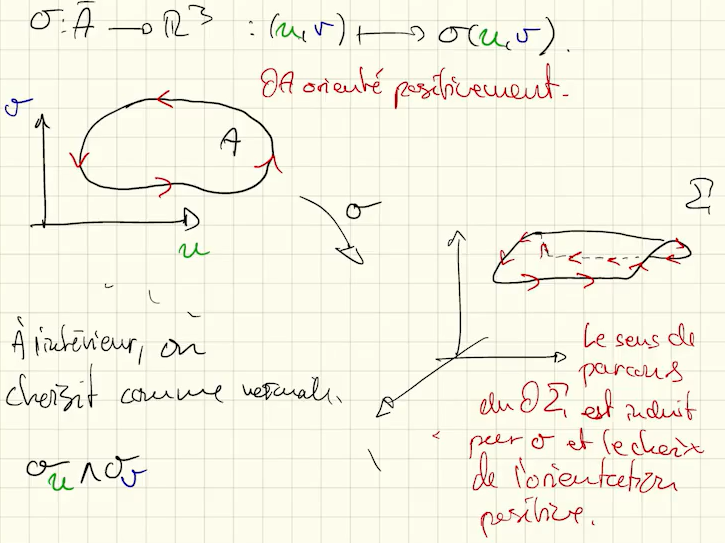 σ: Ā → ℝ³ : (u,v) ↦ σ(u,v).
∂A orienté positivement.
v
A
u
σ
Σ
À l'intérieur, on
choisit comme normale.
σᵤ ∧ σᵥ
Le sens de
parcours
du ∂Σ est induit
par σ et le choix
de l'orientation
positive.